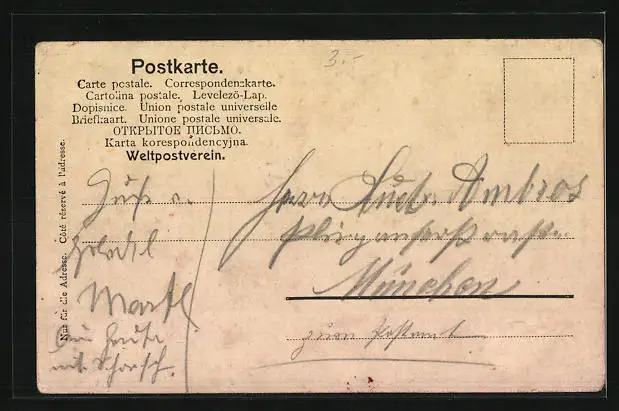 3.-
Postkarte.
Carte postale. Correspondenzkarte.
Cartolina postale. Levelező-Lap.
Dopisnice. Union postale universelle
Briefkaart. Unione postale universale.
ОТКРЫТОЕ ПИСЬМО.
Karta korespondencyjna.
Weltpostverein.
Nur für die Adresse. Côté réservé à l'adresse.
Herrn Ludw. Ambros
München
zum Postamt
Gruß
mit Schorsch.